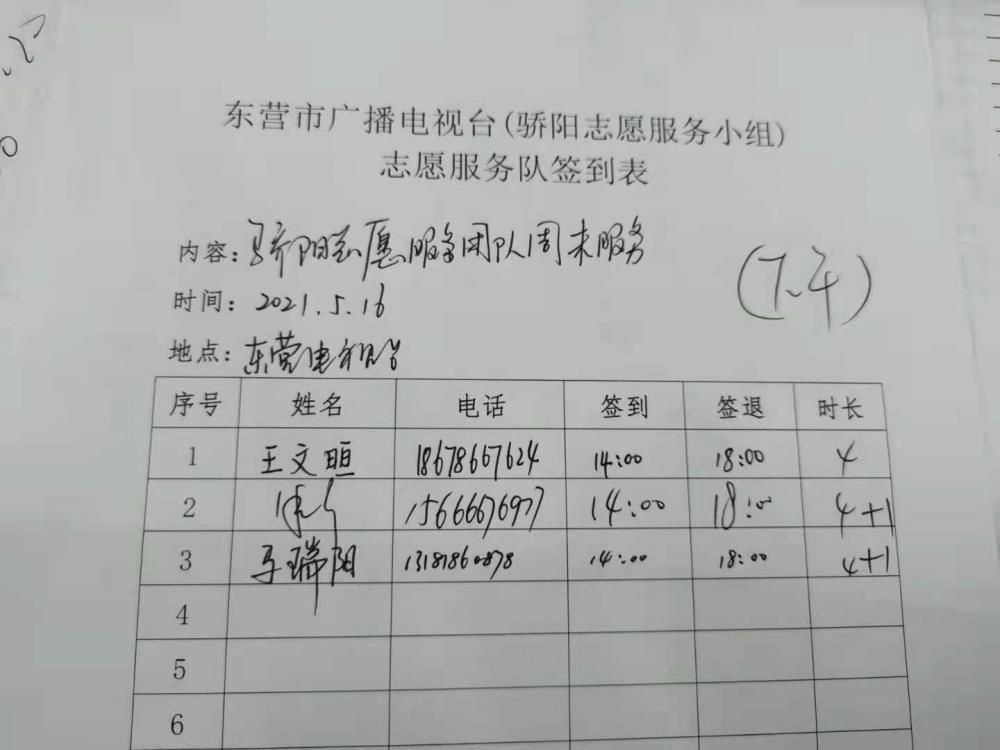 东营市广播电视台(骄阳志愿服务小组)
志愿服务队签到表
内容:骄阳志愿服务团队周末服务
(7.4)
时间:2021.5.16
地点:东营电视台
序号 姓名 电话 签到 签退 时长
1 王文晅 18678667624 14:00 18:00 4
2 15666676977 14:00 18:00 4+1
3 马瑞阳 13181860878 14:00 18:00 4+1
4
5
6